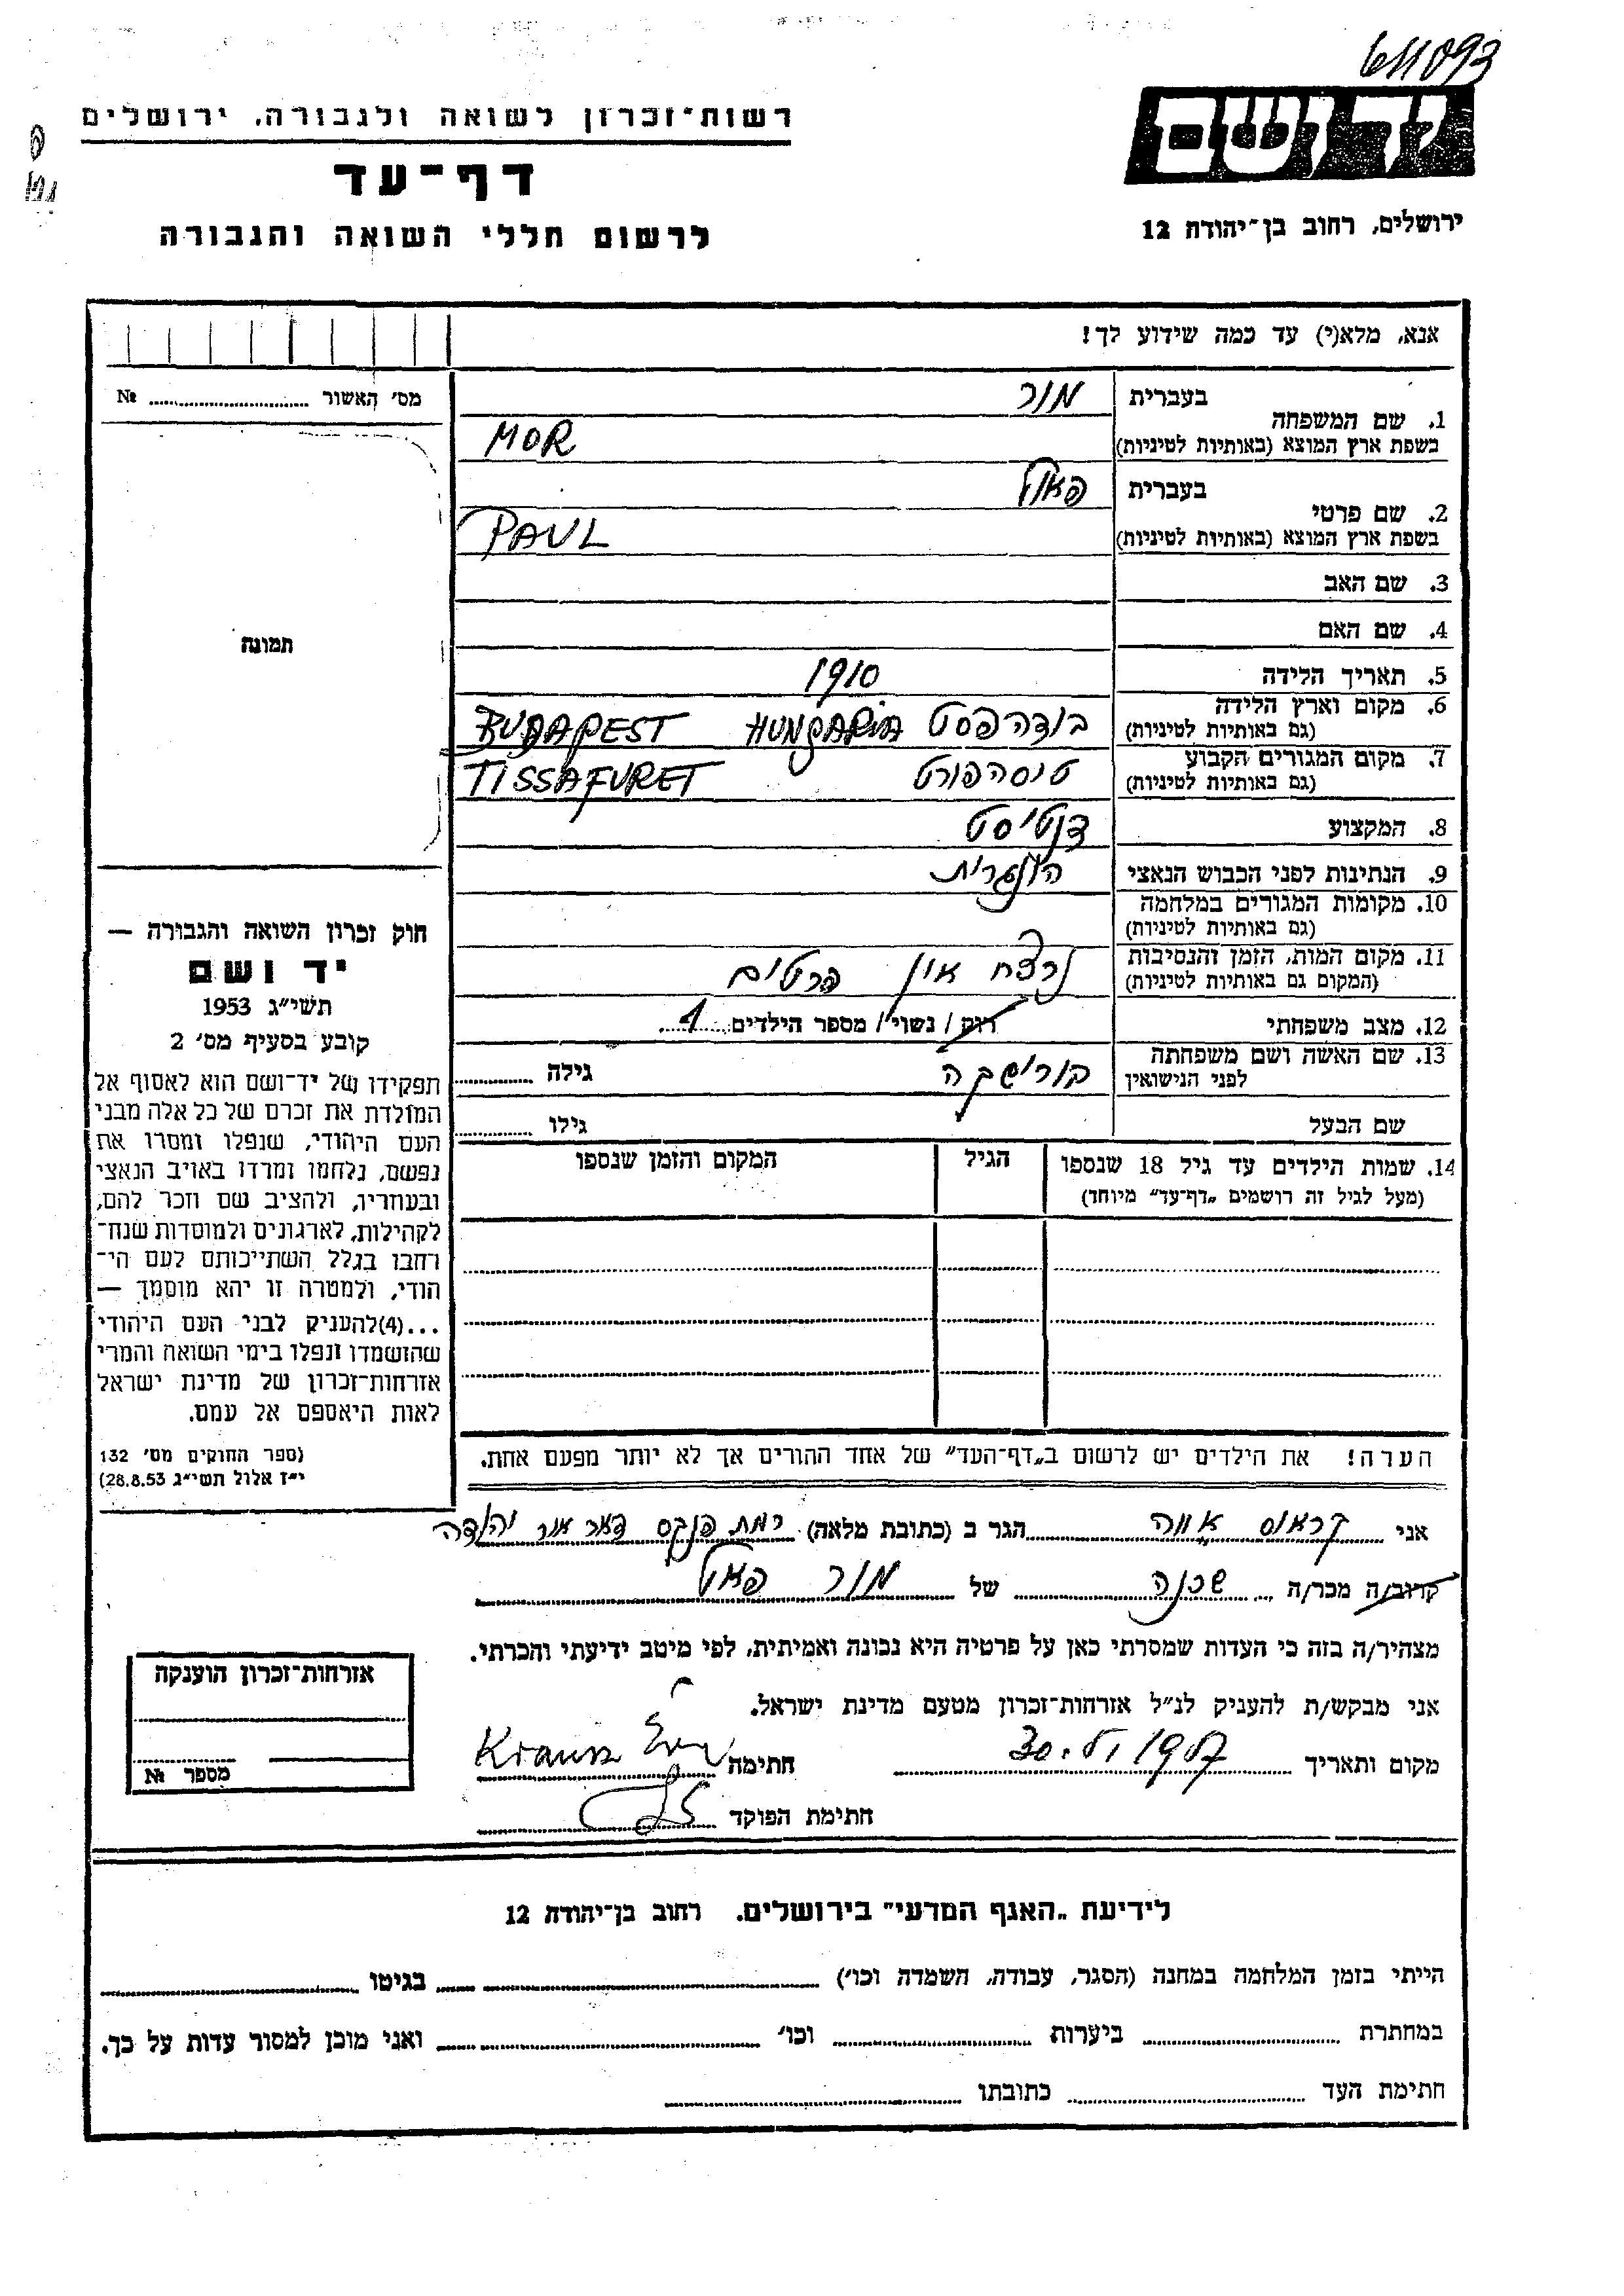 611093
יד ושם
רשות־זכרון לשואה ולגבורה, ירושלים
דף־עד
לרשום חללי השואה והגבורה
ירושלים, רחוב בן־יהודה 12
אנא, מלא(י) עד כמה שידוע לך!
מס׳ האשור № ........
תמונה
בעברית מור
1. שם המשפחה
בשפת ארץ המוצא (באותיות לטיניות) MOR
בעברית פאול
2. שם פרטי
בשפת ארץ המוצא (באותיות לטיניות) PAUL
3. שם האב
4. שם האם
5. תאריך הלידה 1910
6. מקום וארץ הלידה בודהפסט HUNGARIA BUDAPEST
(גם באותיות לטיניות)
7. מקום המגורים הקבוע טיסהפורט TISSAFURET
(גם באותיות לטיניות)
8. המקצוע דנטיסט
9. הנתינות לפני הכבוש הנאצי הונגרית
10. מקומות המגורים במלחמה
(גם באותיות לטיניות)
11. מקום המות, הזמן והנסיבות נרצח אין פרטים
(המקום גם באותיות לטיניות)
12. מצב משפחתי רווק / נשוי / מספר הילדים 1
13. שם האשה ושם משפחתה גילה ........
לפני הנישואין
שם הבעל גילו ........
14. שמות הילדים עד גיל 18 שנספו הגיל המקום והזמן שנספו
(מעל לגיל זה רושמים „דף־עד" מיוחד)
הערה! את הילדים יש לרשום ב„דף־העד" של אחד ההורים אך לא יותר מפעם אחת.
חוק זכרון השואה והגבורה —
יד ושם
תשי״ג 1953
קובע בסעיף מס׳ 2
תפקידו של יד־ושם הוא לאסוף אל
המולדת את זכרם של כל אלה מבני
העם היהודי, שנפלו ומסרו את
נפשם, נלחמו ומרדו באויב הנאצי
ובעוזריו, ולהציב שם וזכר להם,
לקהילות, לארגונים ולמוסדות שנח־
רבו בגלל השתייכותם לעם הי־
הודי, ולמטרה זו יהא מוסמך —
...(4) להעניק לבני העם היהודי
שהושמדו ונפלו בימי השואה והמרי
אזרחות־זכרון של מדינת ישראל
לאות היאספם אל עמם.
(ספר החוקים מס׳ 132
י״ז אלול תשי״ג 28.8.53)
אני קראוס אווה הגר ב (כתובת מלאה) רמת פנקס דאר אור יהודה
קרוב/ה מכר/ה שכנה של מור פאול
מצהיר/ה בזה כי העדות שמסרתי כאן על פרטיה היא נכונה ואמיתית, לפי מיטב ידיעתי והכרתי.
אני מבקש/ת להעניק לנ״ל אזרחות־זכרון מטעם מדינת ישראל.
מקום ותאריך חתימה Kraus Eva
חתימת הפוקד
אזרחות־זכרון הוענקה
מספר №
לידיעת „האגף המדעי" בירושלים. רחוב בן־יהודה 12
הייתי בזמן המלחמה במחנה (הסגר, עבודה, השמדה וכו׳) ........ בגיטו ........
במחתרת ........ ביערות ........ וכו׳ ........ ואני מוכן למסור עדות על כך.
חתימת העד ........ כתובתו ........